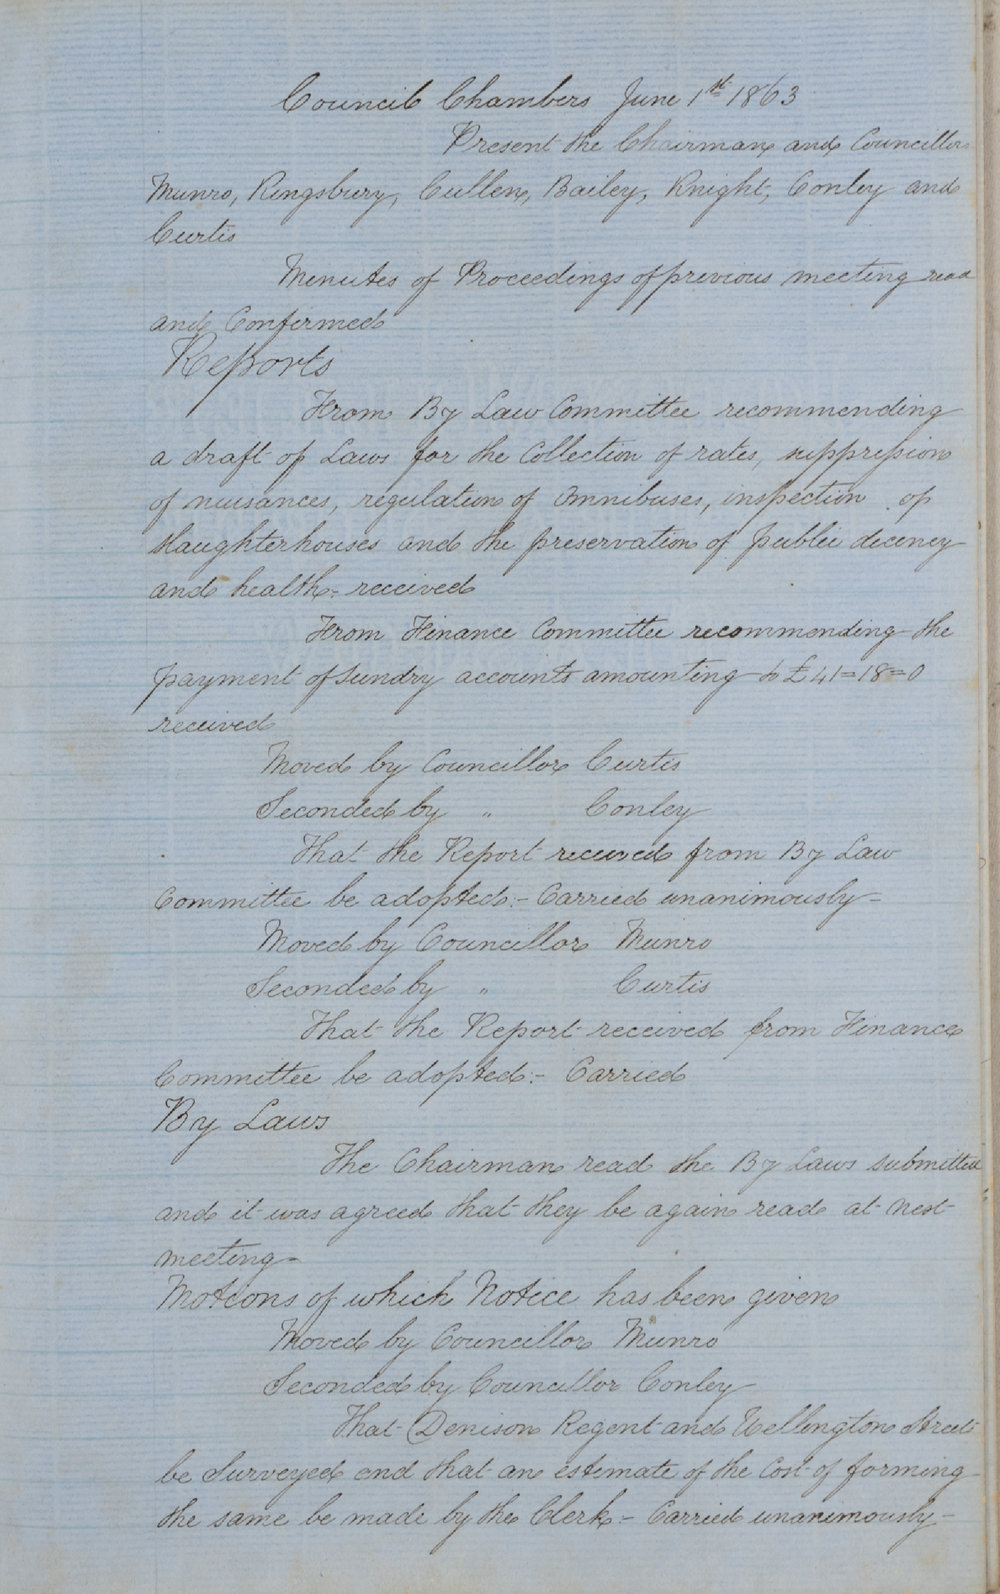 Council Chambers June 1st 1863
Present the Chairman and Councillors
Munro, Kingsbury, Cullen, Bailey, Knight, Conley and
Curtis
Minutes of Proceedings of previous meeting read
and Confirmed
Reports
From By Law Committee recommending
a draft of Laws for the Collection of rates, suppression
of nuisances, regulation of Omnibuses, inspection of
slaughterhouses and the preservation of public decency
and health:- received
From Finance Committee recommending the
payment of sundry accounts amounting to £41=18=0
received
Moved by Councillor Curtis
Seconded by " Conley
That the Report received from By Law
Committee be adopted:- Carried unanimously-
Moved by Councillor Munro
Seconded by " Curtis
That the Report received from Finance
Committee be adopted:- Carried
By Laws
The Chairman read the By Laws submitted
and it was agreed that they be again read at next
meeting-
Motions of which Notice has been given
Moved by Councillor Munro
Seconded by Councillor Conley
That Denison Regent and Wellington Street
be Surveyed and that an estimate of the Cost of forming
the same be made by the Clerk:- Carried unanimously-